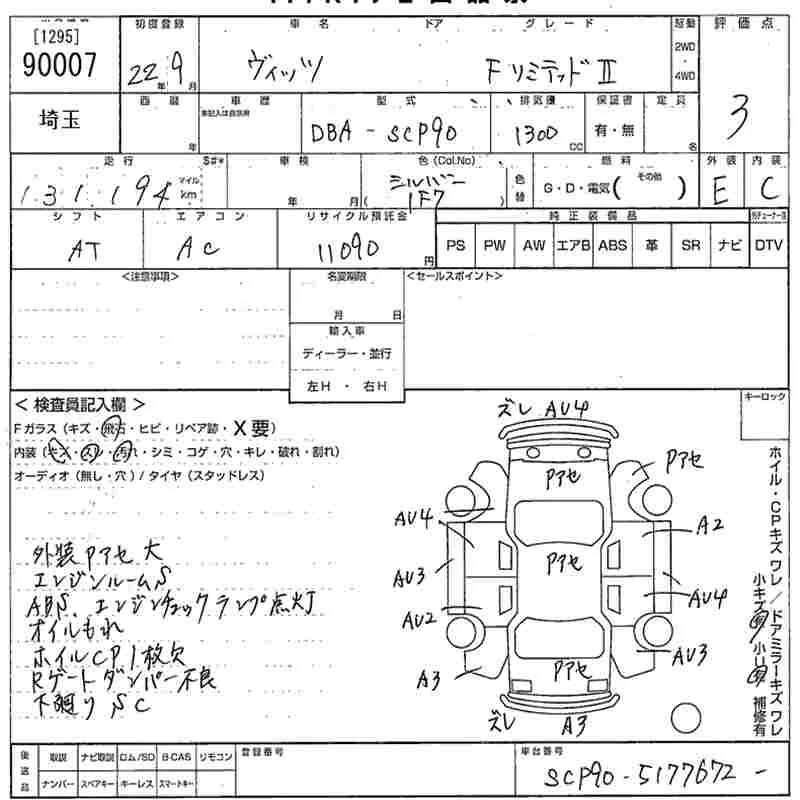 [1295]
90007
初度登録
22年 9月
車名
ヴィッツ
ドア
グレード
F リミテッド II
駆動
2WD
4WD
評価点
3
埼玉
西暦
年
車歴
未記入は自家用
型式
DBA - SCP90
排気量
1300 CC
保証書
有・無
定員
名
走行
S#*
131,194
マイル
km
車検
年 月
色 (Col.No)
シルバー
( 1F7 )
色替
燃料
G・D・電気( その他 )
外装
E
内装
C
シフト
AT
エアコン
AC
リサイクル預託金
11090 円
純正装備品
PS PW AW エアB ABS 革 SR ナビ DTV
<注意事項>
名変期限
月 日
輸入車
ディーラー・並行
左H ・ 右H
<セールスポイント>
< 検査員記入欄 >
Fガラス(キズ・飛石・ヒビ・リペア跡・X要)
内装(キズ・スレ・汚れ・シミ・コゲ・穴・キレ・破れ・割れ)
オーディオ(無し・穴)/タイヤ(スタッドレス)
外装Pアセ大
エンジンルームS
ABS、エンジンチェックランプ点灯
オイルもれ
ホイルCP1枚欠
Rゲートダンパー不良
下廻りSC
ズレ AU4
Pアセ
Pアセ
AU4
A2
Pアセ
AU3
AU4
AU2
AU3
A3
Pアセ
ズレ A3
キーロック
ホイル・CPキズワレ/ドアミラーキズワレ
小キズ有/小U有 補修有
後送品
取説 ナビ取説 ロム/SD B-CAS リモコン
ナンバー スペアキー キーレス スマートキー
登録番号
車台番号
SCP90-5177672-